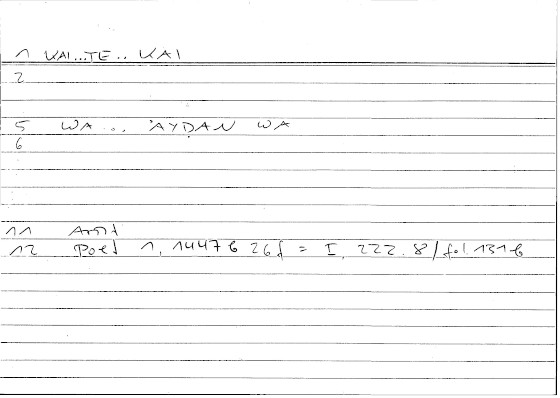 1 KAI...TE.. KAI
2
5 WA... 'AYḌAN WA
6
11 Arist
12 Poet 1, 1447b 26f = I, 222.8/fol 131b